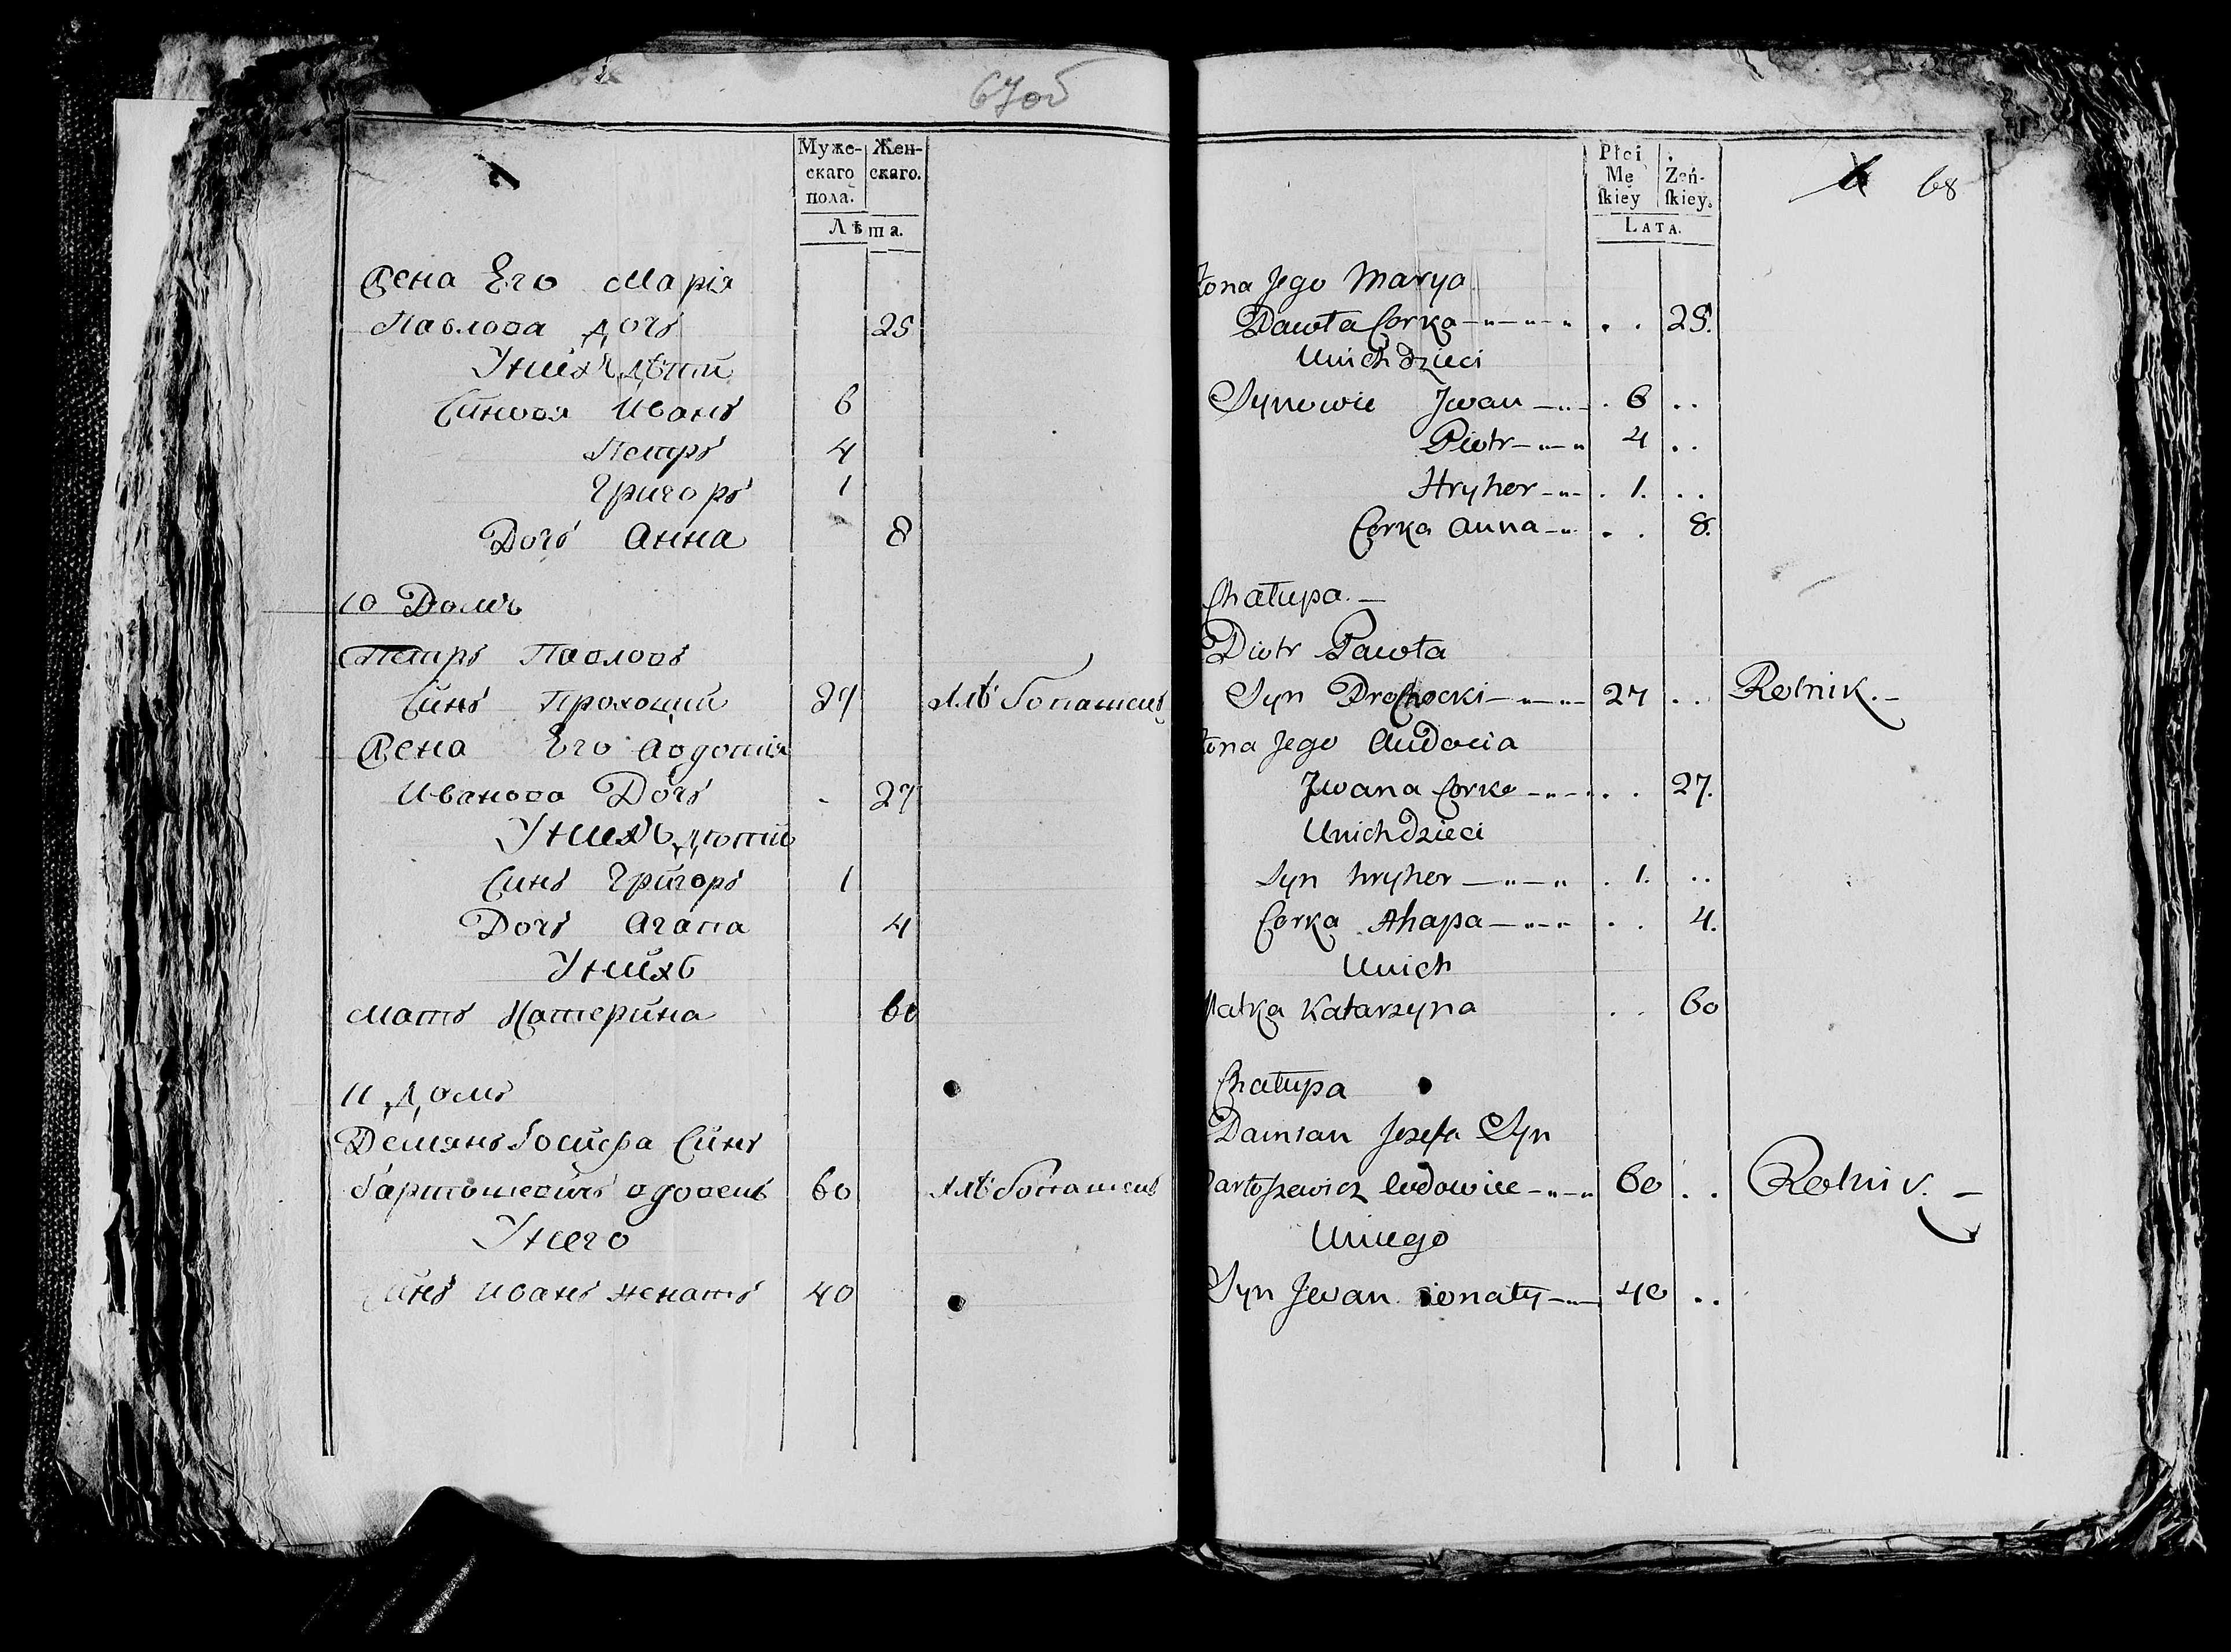 67об
Муже-
скаго
пола.
Жен-
скаго.
Лѣта.
Жена Его Марія
Павлова дочь 25
У нихъ дѣти
Синовя Иванъ 6
Петръ 4
Григоръ 1
Дочь Анна 8
10 Домъ
Петръ Павловъ
Синъ Прохоцкий 27
Жена Его Авдотия
Иванова Дочь 27
У нихъ дѣти
Синъ Григоръ 1
Дочь Агапа 4
У нихъ
Мать Катерина 60
11 Домъ
Демянъ Іосифа Синъ
Бартошевичъ вдовецъ 60
У него
Синъ Иванъ женатъ 40
Płci
Mę
ſkiey
Żeń-
ſkiey.
LATA.
68
Żona Jego Marya
Pawła Corka 25.
Unich dzieci
Synowie Jwan 6
Piotr 4
Hryhor 1.
Corka Anna 8.
Chałupa.
Piotr Pawła
Syn Prochocki 27 Rolnik.
Żona Jego Audocia
Jwana Corka 27.
Unich dzieci
Syn hryhor 1.
Corka Ahapa 4.
Unich
Matka Katarzyna 60
Chałupa
Damian Jozefa Syn
Bartoszewicz wdowiec 60 Rolnik.
Uniego
Syn Jwan żonaty 40